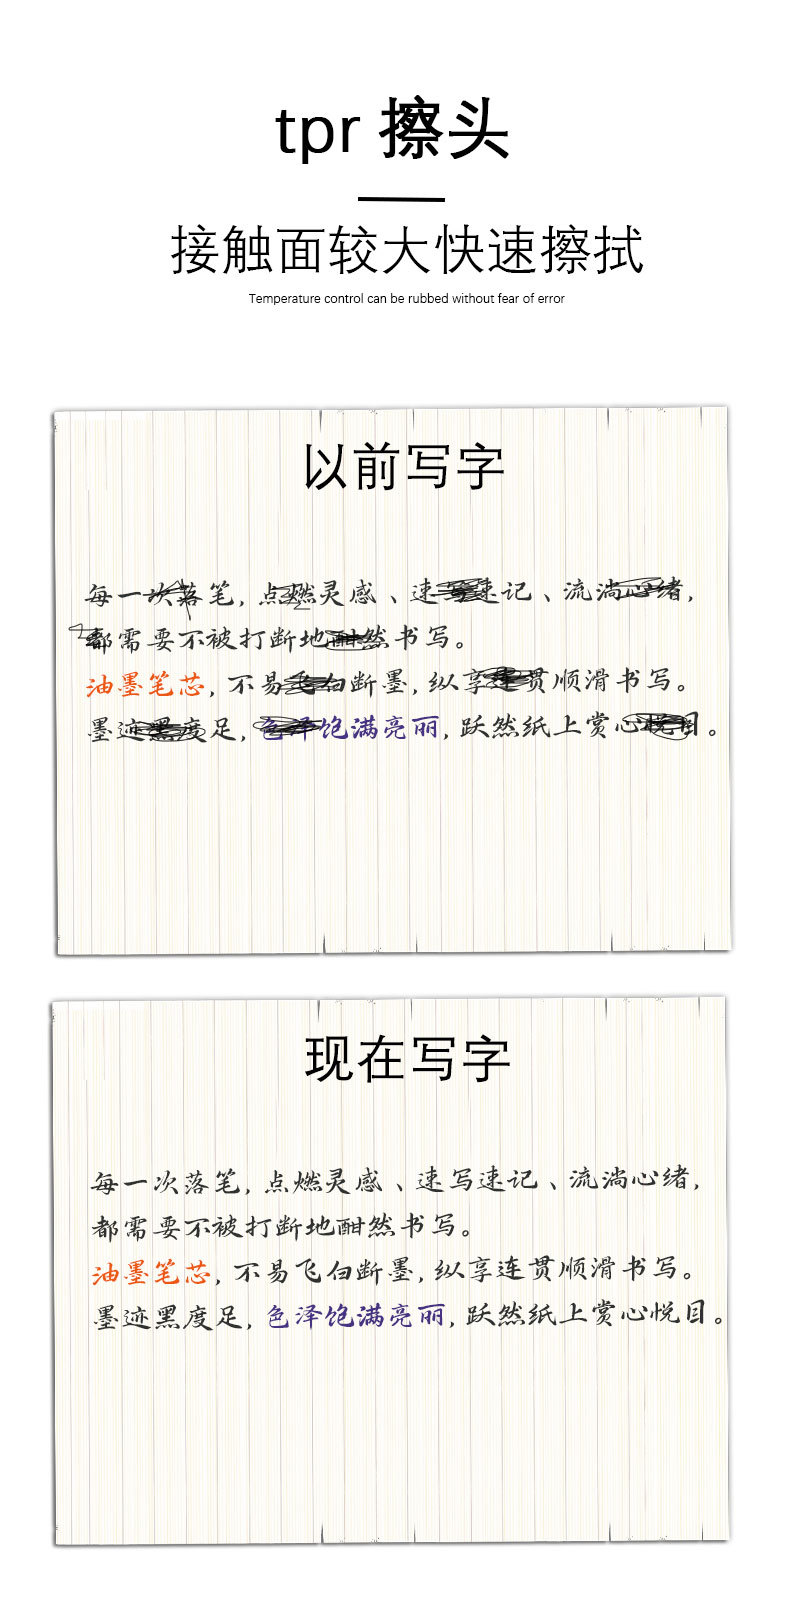 tpr 擦头
接触面较大快速擦拭
Temperature control can be rubbed without fear of error
以前写字
每一次落笔,点燃灵感、速写速记、流淌心绪,
都需要不被打断地酣然书写。
油墨笔芯,不易飞白断墨,纵享连贯顺滑书写。
墨迹黑度足,色泽饱满亮丽,跃然纸上赏心悦目。
现在写字
每一次落笔,点燃灵感、速写速记、流淌心绪,
都需要不被打断地酣然书写。
油墨笔芯,不易飞白断墨,纵享连贯顺滑书写。
墨迹黑度足,色泽饱满亮丽,跃然纸上赏心悦目。